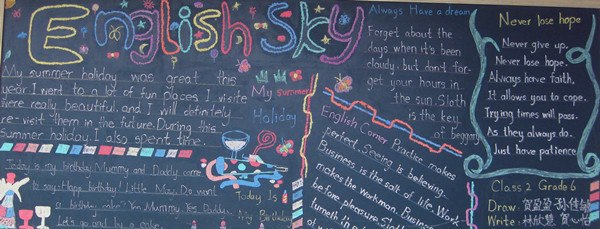 English Sky
My summer holiday was great this
year. I went to a lot of fun places I visite
were really beautiful and I will definitely
re-visit them in the future. During this
summer holiday I also spent time.
Today is my birthday. Mummy and Daddy come
to say: Happy birthday! Little May. Do want
a birthday cake? Yes Mummy, Yes Daddy.
Let's go and by a cake
My Summer
Holiday
Today Is
My Birthday
Always Have a dream
Forget about the
days when it's been
cloudy. but don't for-
get your hours in
the sun. Sloth
is the key
of beggary
English Corner Practise makes
perfect. Seeing is believing.
Business is the salt of life. Work
makes the workman. Business
before pleasure.
turneth
Never lose hope
Never give up.
Never lose hope.
Always have faith,
It allows you to cope.
Trying times will pass.
As they always do.
Just have patience.
Class 2 Grade 6
Draw: 贺盈盈 孙佳敏
Write: 林欣慧 贺心怡